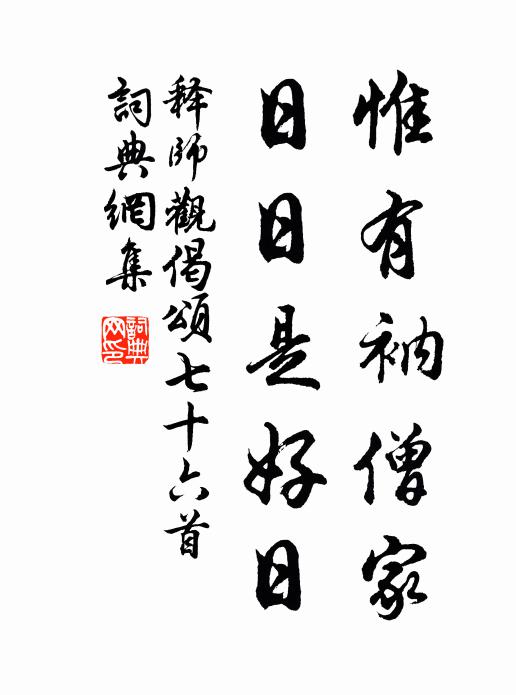 惟有衲僧家
日日是好日
释師觀偈頌七十六首
詞典網集
詞典網印